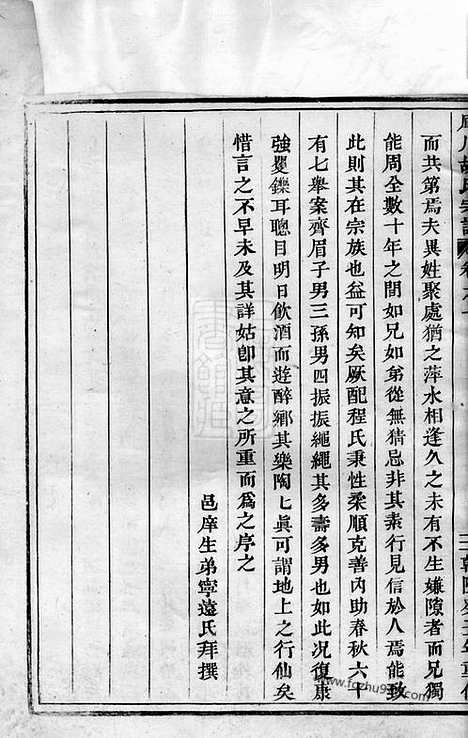 胡氏宗譜
而共第焉夫異姓聚處猶之萍水相逢久之未有不生嫌隙者而兄獨
能周全數十年之間如兄如弟從無猜忌非其素行見信於人焉能致
此則其在宗族也益可知矣厥配程氏秉性柔順克善內助春秋六十
有七舉案齊眉子男三孫男四振振繩繩其多壽多男也如此况復康
強矍鑠耳聰目明日飲酒而遊醉鄉其樂陶匕眞可謂地上之行仙矣
惜言之不早未及其詳姑卽其意之所重而為之序之
邑庠生弟寧遠氏拜撰
www.fozhu920.com